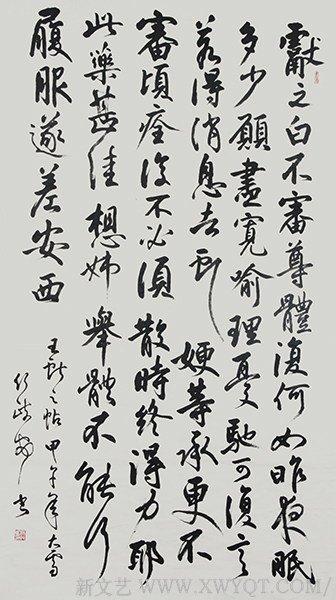 獻之白不審尊體復何如昨夜眠
多少願盡寬喻理憂馳可復言
若得消息等承更不
審頃痊復不必須散時終得力耶
此藥甚佳想姊舉體不能行
履服遂差安西
王獻之帖 甲午年大雪
書
新文艺 WWW.XWYQT.COM